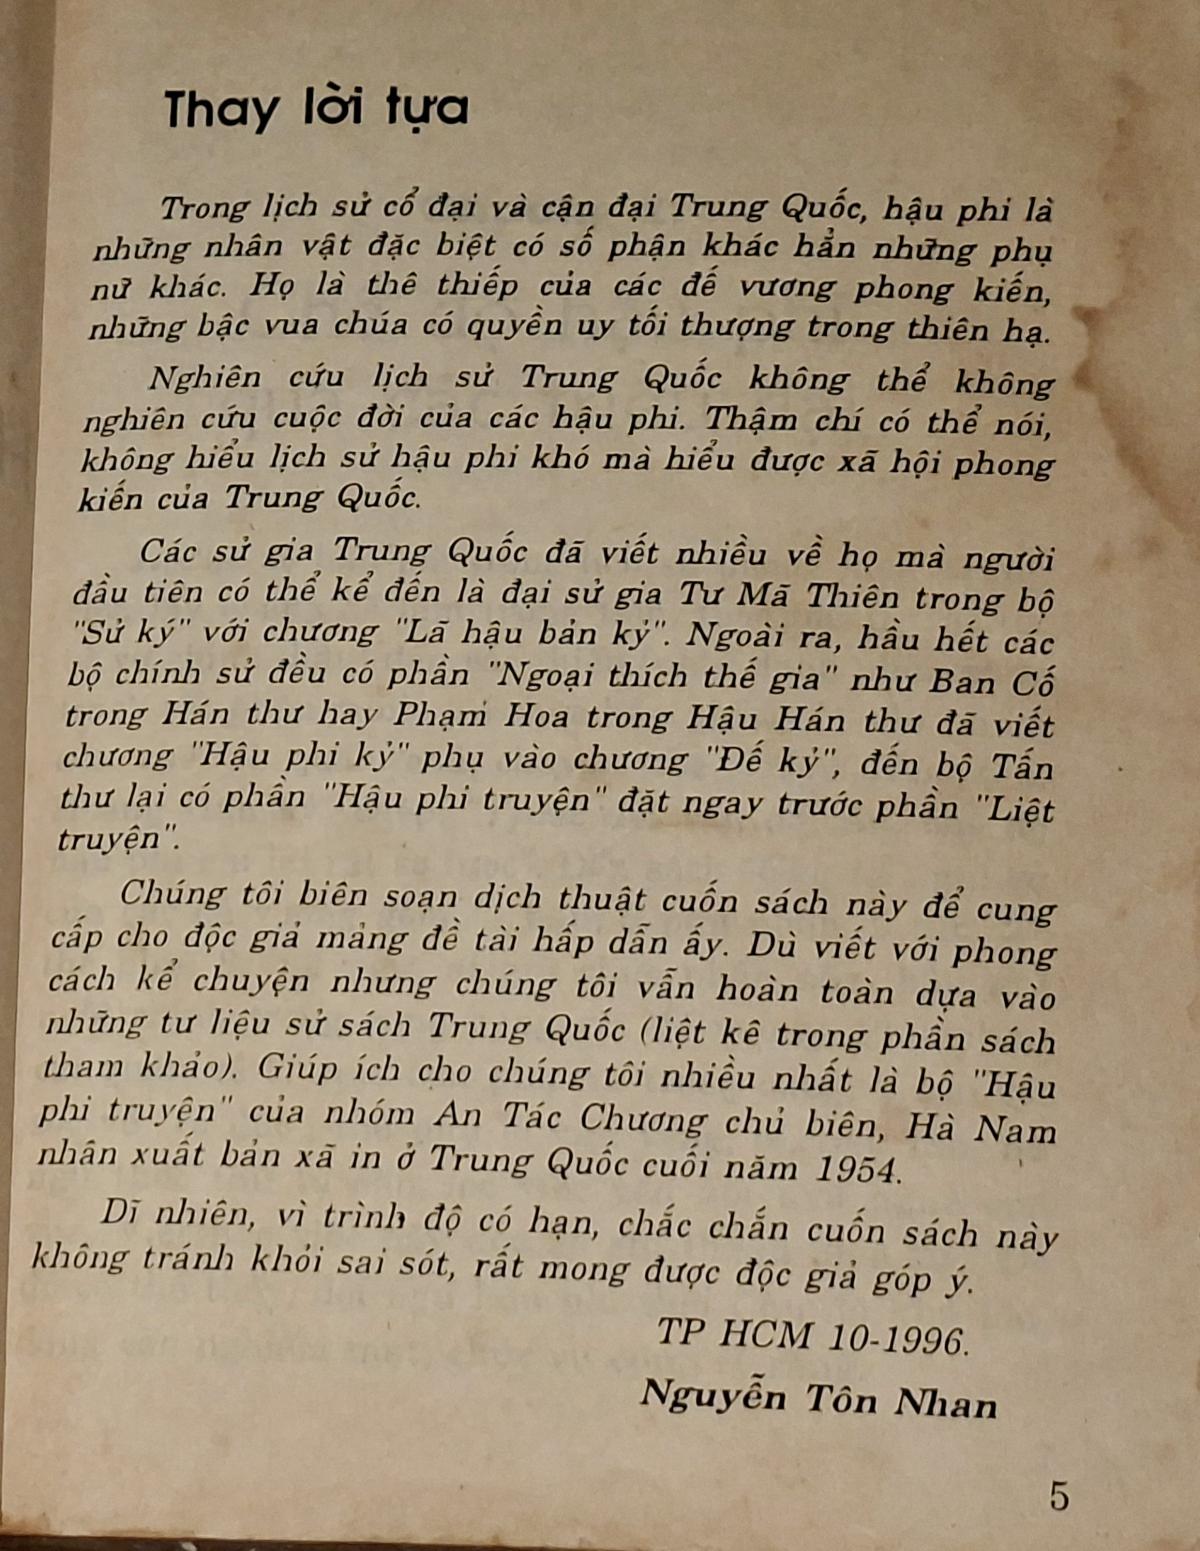 Thay lời tựa
Trong lịch sử cổ đại và cận đại Trung Quốc, hậu phi là
những nhân vật đặc biệt có số phận khác hẳn những phụ
nữ khác. Họ là thê thiếp của các đế vương phong kiến,
những bậc vua chúa có quyền uy tối thượng trong thiên hạ.
Nghiên cứu lịch sử Trung Quốc không thể không
nghiên cứu cuộc đời của các hậu phi. Thậm chí có thể nói,
không hiểu lịch sử hậu phi khó mà hiểu được xã hội phong
kiến của Trung Quốc.
Các sử gia Trung Quốc đã viết nhiều về họ mà người
đầu tiên có thể kể đến là đại sử gia Tư Mã Thiên trong bộ
"Sử ký" với chương "Lã hậu bản kỷ". Ngoài ra, hầu hết các
bộ chính sử đều có phần "Ngoại thích thế gia" như Ban Cố
trong Hán thư hay Phạm Hoa trong Hậu Hán thư đã viết
chương "Hậu phi kỷ" phụ vào chương "Đế kỷ", đến bộ Tấn
thư lại có phần "Hậu phi truyện" đặt ngay trước phần "Liệt
truyện".
Chúng tôi biên soạn dịch thuật cuốn sách này để cung
cấp cho độc giả mảng đề tài hấp dẫn ấy. Dù viết với phong
cách kể chuyện nhưng chúng tôi vẫn hoàn toàn dựa vào
những tư liệu sử sách Trung Quốc (liệt kê trong phần sách
tham khảo). Giúp ích cho chúng tôi nhiều nhất là bộ "Hậu
phi truyện" của nhóm An Tác Chương chủ biên, Hà Nam
nhân xuất bản xã in ở Trung Quốc cuối năm 1954.
Dĩ nhiên, vì trình độ có hạn, chắc chắn cuốn sách này
không tránh khỏi sai sót, rất mong được độc giả góp ý.
TP HCM 10-1996.
Nguyễn Tôn Nhan
5